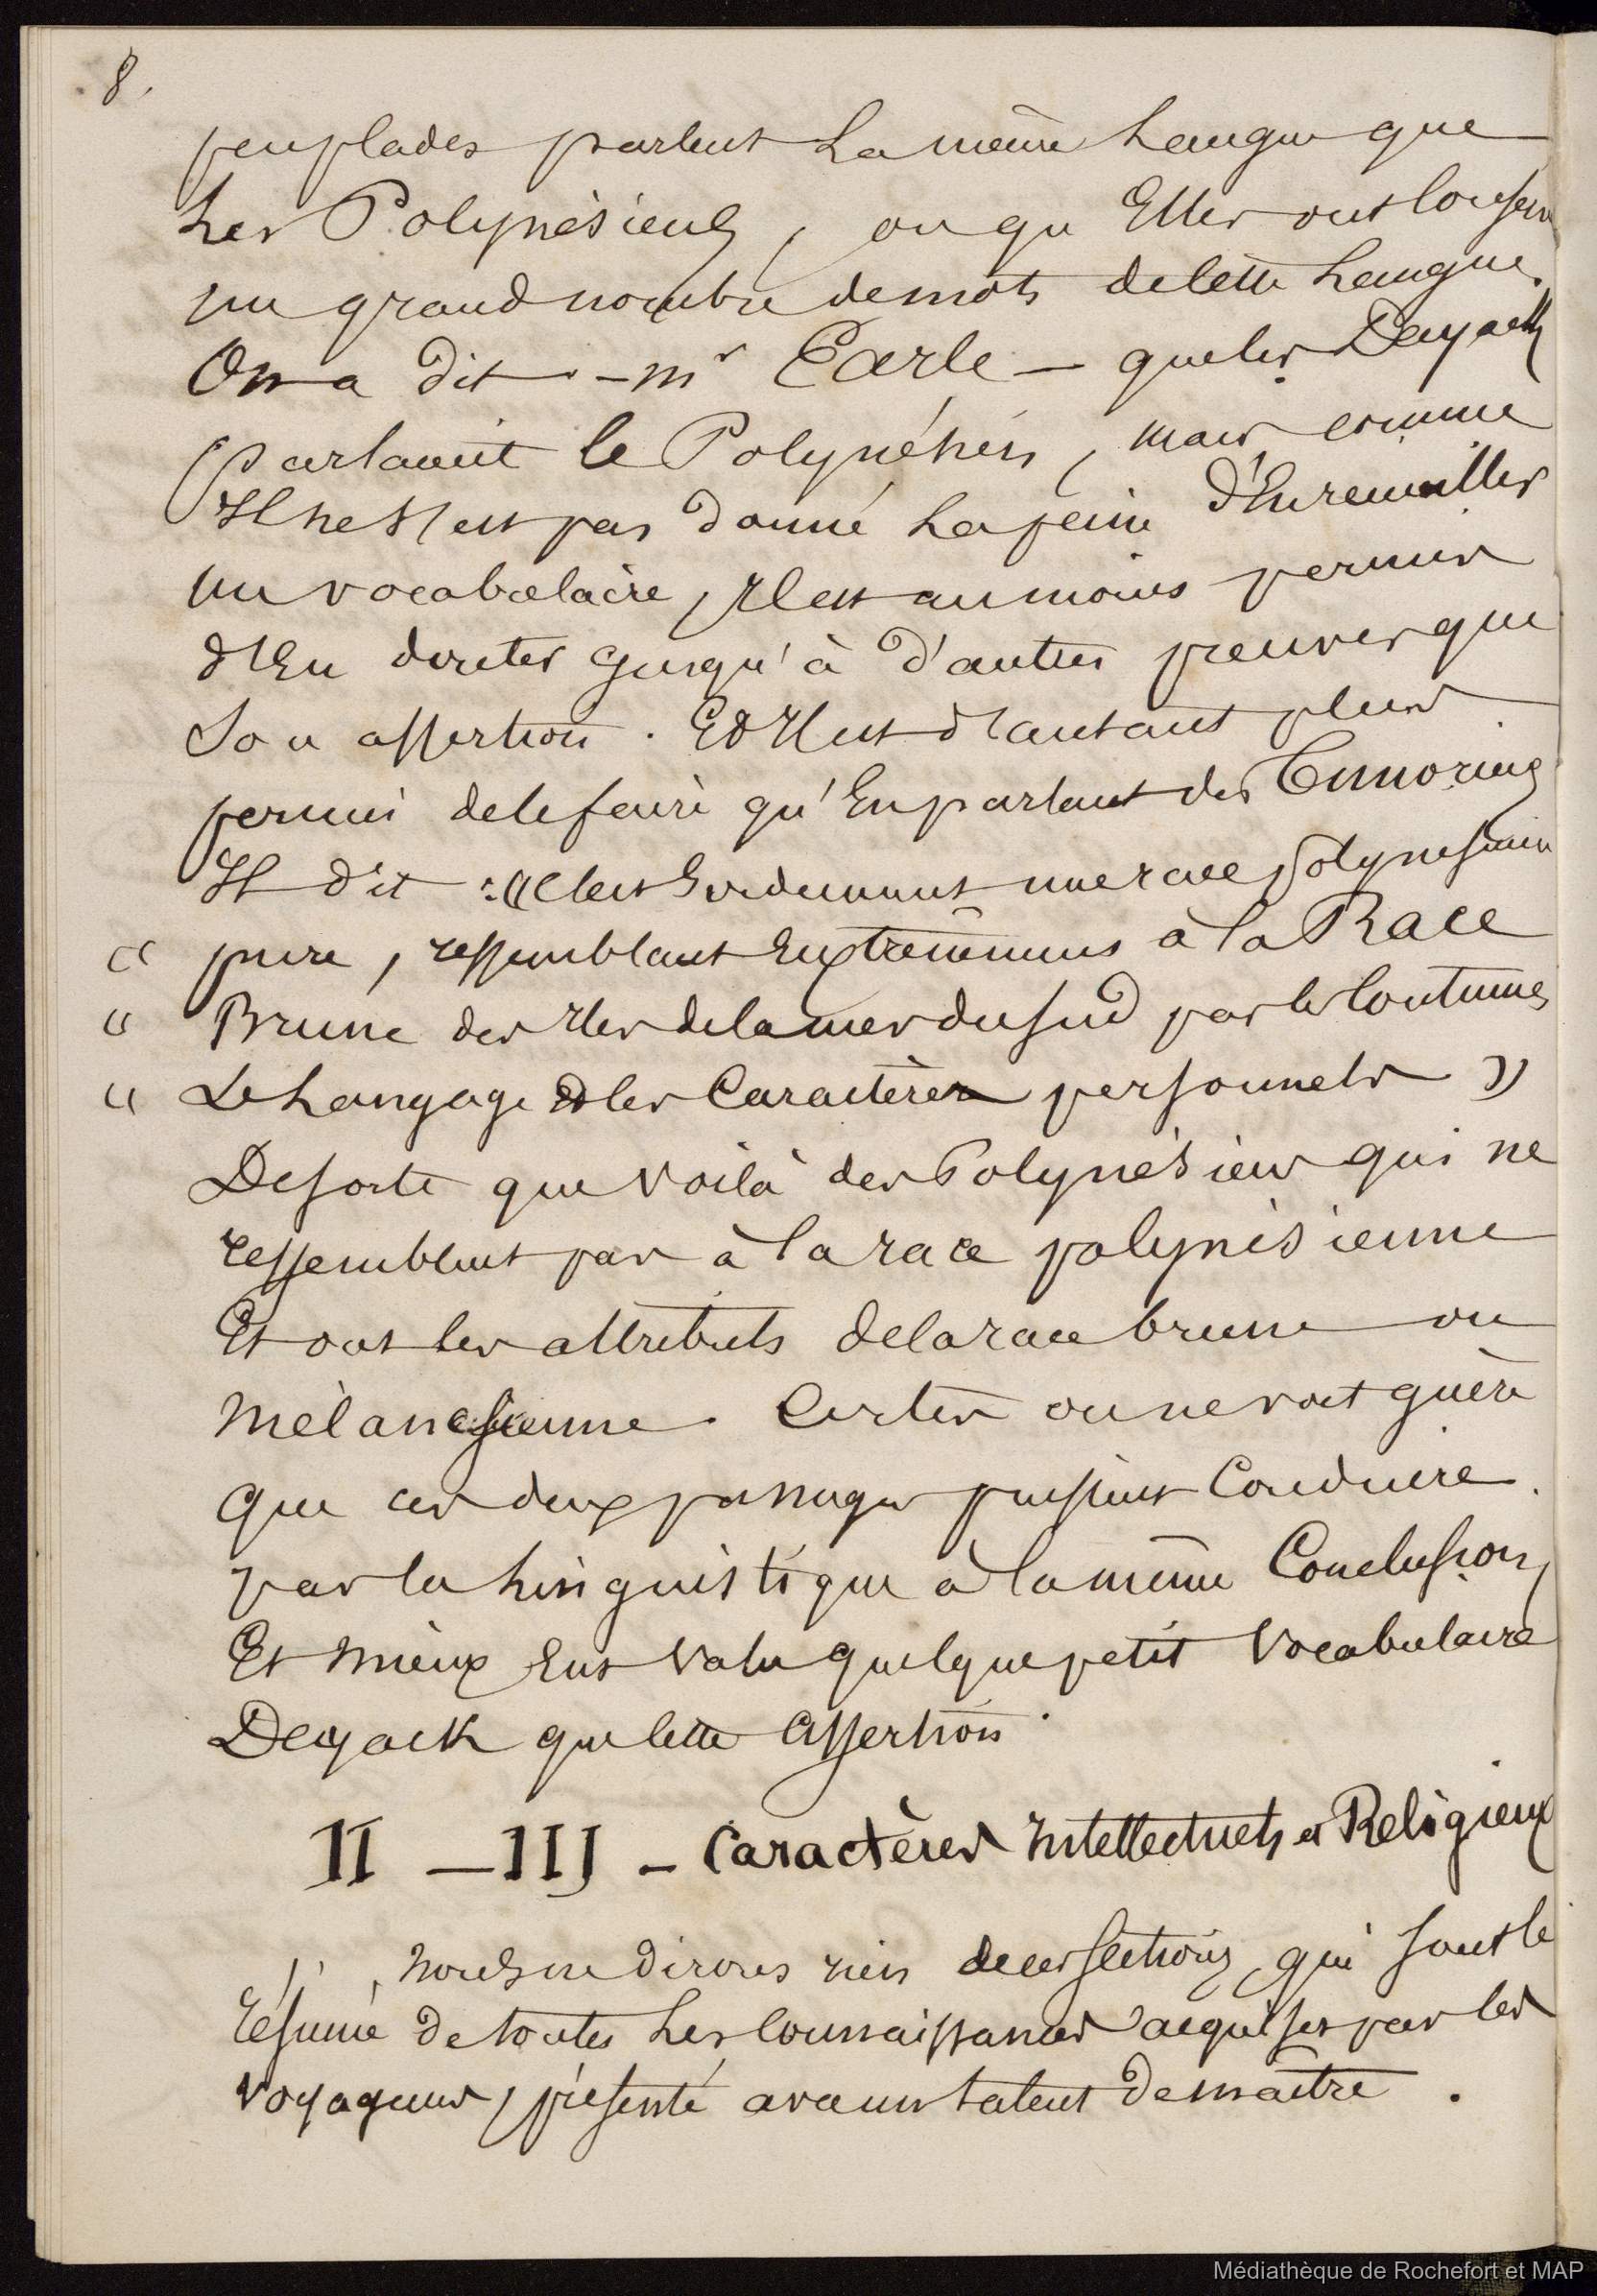 8.
peuplades parlent La même Langue que
Les Polynésiens, ou qu'Elles ont conservé
un grand nombre de mots de cette Langue.
On a dit - mr Earle - que les Dayacks
Parlaient le Polynésien, mais, comme
Il ne s'est pas donné La peine d'En recueillir
un vocabulaire, Il est au moins permis
d'En douter jusqu'à d'autres preuves que
Son assertion. Et Il est d'autant plus
permis de le faire qu'En parlant des Timoriens
Il dit : « C'est Evidemment une race polynésienne
« pure, ressemblant Extrêmement à la Race
« Brune des Iles de la mer du sud par les Coutumes
« Le Langage et les Caractères personnels »
De sorte que voilà des Polynésiens qui ne
ressemblent pas à la race polynésienne
Et ont les attributs de la race brune ou
mélanésienne. Certes on ne voit guère
que ces deux passages puissent Conduire
par la Linguistique à la même Conclusion,
Et mieux Eut valu quelque petit Vocabulaire
Dayack que cette Assertion.
II - III - Caractères Intellectuels et Religieux
Nous ne dirons rien de ces sections, qui sont le
résumé de toutes Les Connaissances acquises par les
voyageurs, présenté avec un talent de maître.
Médiathèque de Rochefort et MAP